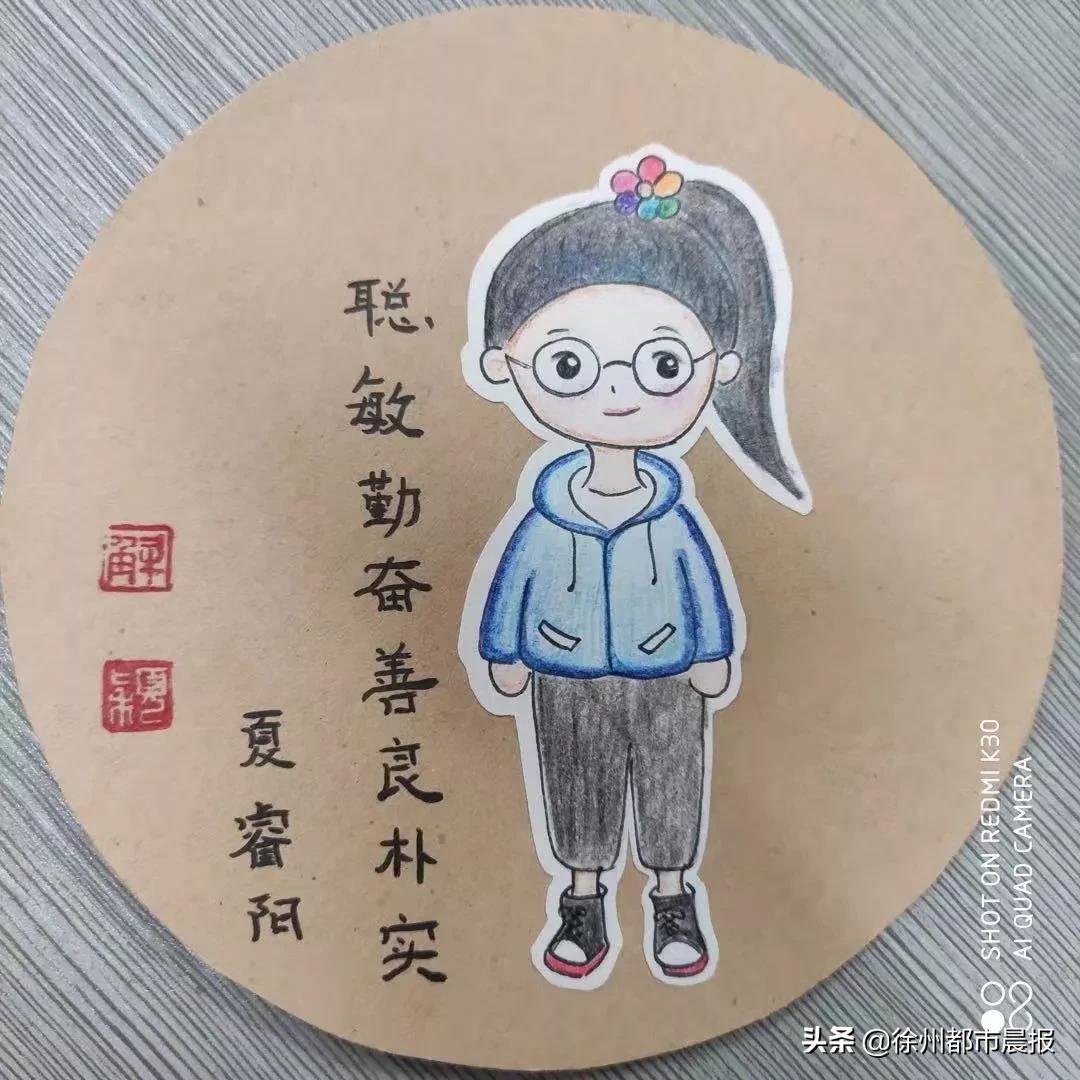 聪敏勤奋善良朴实
夏睿阳
SHOT ON REDMI K30
AI QUAD CAMERA
头条 @徐州都市晨报